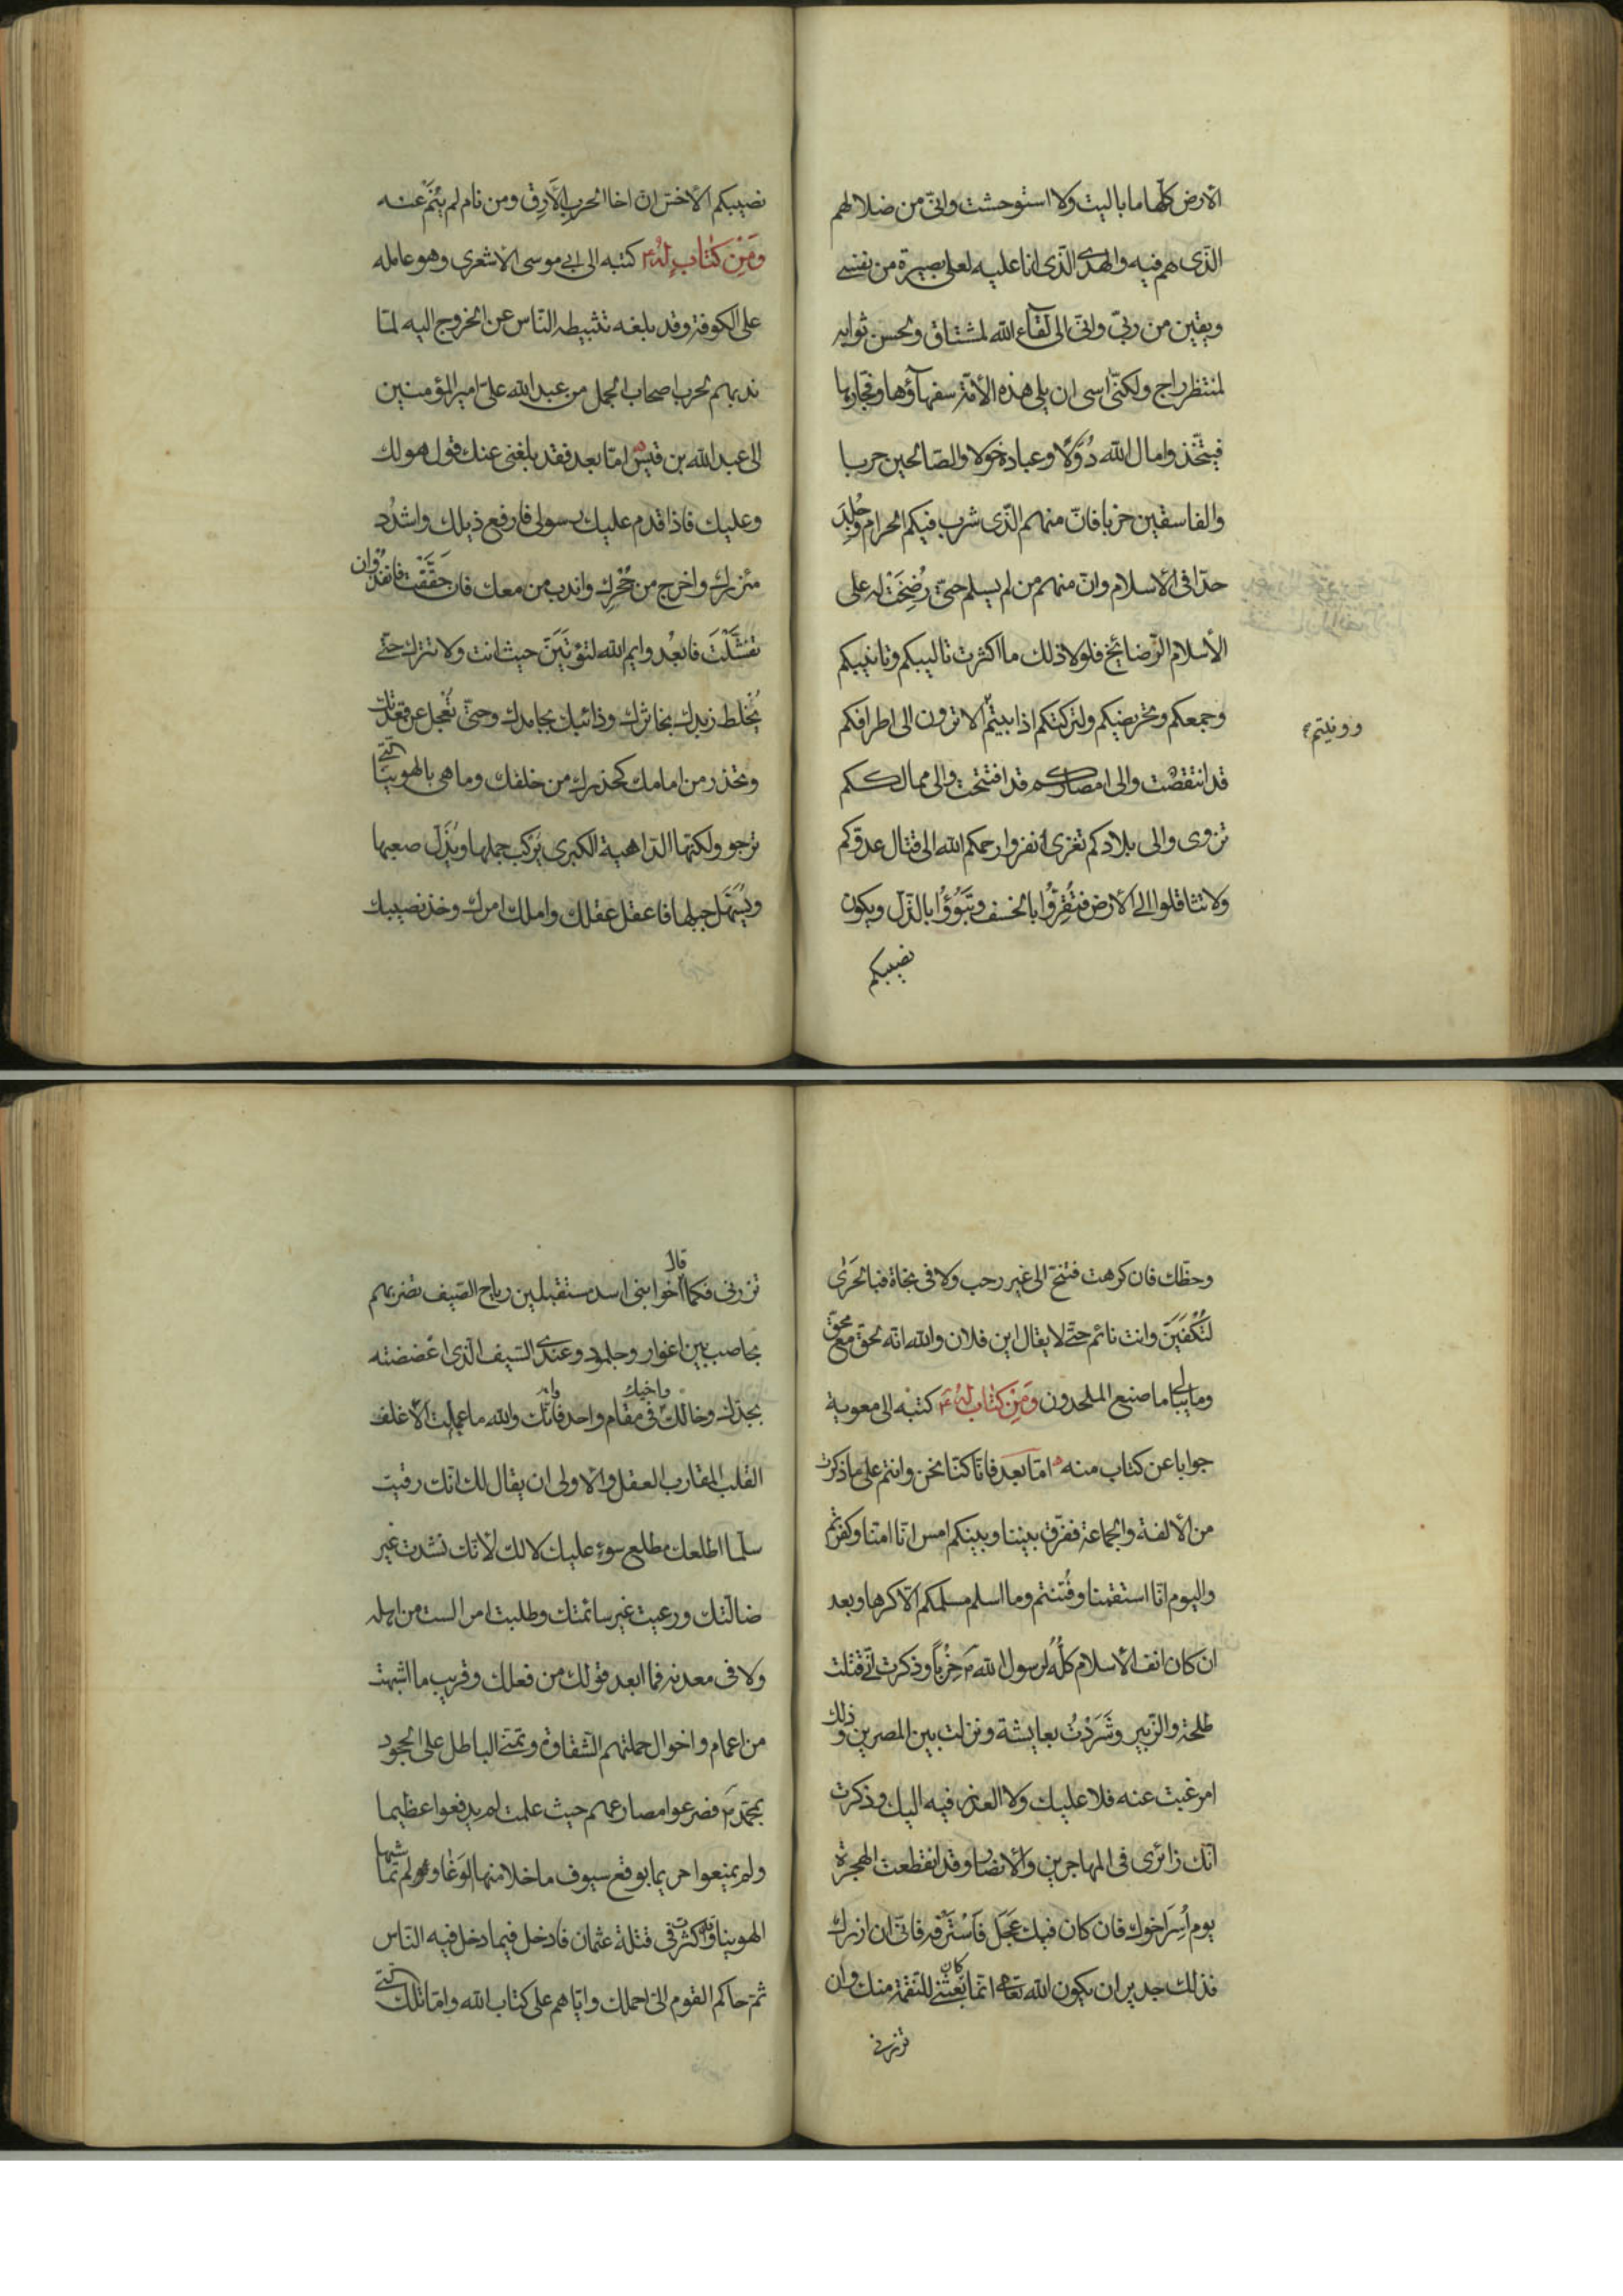 الارض كلّها ما باليت ولا استوحشت وانّى من ضلالهم
الّذى هم فيه والهدى الّذى انا عليه لعلى بصيرة من نفسى
ويقين من ربّى وانّى الى لقآء الله لمشتاق ولحسن ثوابه
لمنتظر راج ولكنّنى اسى ان يلى هذه الأمّة سفهآؤها وفجّارها
فيتّخذوا مال الله دُوَلًا وعباده خولا والصّالحين حربا
والفاسقين حزبا فانّ منهم الّذى شرب فيكم الحرام وجُلِدَ
حدّا فى الأسلام وانّ منهم من لم يسلم حتّى رُضِخَتْ له على
الأسلام الرّضائخ فلولا ذلك ما اكثرت تاليبكم وتانيبكم
وجمعكم وتحريضكم ولتركتكم اذا ابيتم الا ترون الى اطرافكم
وونيتم
قد انتقصت والى امصاركم قد افتتحت والى ممالككم
تزوى والى بلادكم تغزى انفروا رحمكم الله الى قتال عدوّكم
ولا تثاقلوا الى الأرض فتُقِرّوُا بالخسف وتبَوُؤُا بالذّلّ ويكون
نصيبكم
نصيبكم الأخسّ ان اخا الحرب الأَرِقُ ومن نام لم يُنَمْ عنه
وَمَنِ كتابٍ لهُ كتبه الى ابى موسى الاشعرى وهو عامله
على الكوفة وقد بلغه تثبيطه النّاس عن الخروج اليه لمّا
ندبهم لحرب اصحاب الجمل من عبد الله علىّ امير المؤمنين
الى عبد الله بن قيس امّا بعد فقد بلغنى عنك قول هو لك
وعليك فاذا قدم عليك رسولى فارفع ذيلك واشدُد
مئزرك واخرج من جُحْرِك واندب من معك فان حَقَّقْتَ فانفذ وان
تفشَّلْتَ فابعُد وايم الله لتؤتَيَنّ حيث انت ولا تترك حتّى
يُخلط زبدك بخاثرك وذائبك بجامدك وحتّى تُعجل عن قعدتك
وتحذر من امامك كحذرك من خلفك وما هى بالهوينا الّتى
ترجو ولكنّها الدّاهية الكبرى يُرْكب جملها ويُذَلّ صعبها
ويُسَهّل جبلها فاعقل عقلك واملك امرك وخذ نصيبك
وحظّك فان كرهت فتنحّ الى غير رحب ولا فى نجاة فبالحَرَى
لَتُكْفَيَنّ وانت نائم حتّى لا يقال اين فلان والله انّه لحقّ مع محقّ
وما يبالى ما صنع الملحدون وَمَنِ كتاب لهُ كتبه الى معوية
جوابا عن كتاب منه امّا بعد فانّا كنّا نحن وانتم على ما ذكرت
من الألفة والجماعة ففرّق بيننا وبينكم امس انّا امنّا وكفرتم
واليوم انّا استقمنا وفُتنتم وما اسلم مسلمكم الّا كرها وبعد
ان كان انف الأسلام كلّهُ لرسول الله حِزْباً وذكرت انّى قتلت
طلحة والزّبير وشَرَدْتُ بعايشة ونزلت بين المصرين وذلك
امر غبت عنه فلا عليك ولا العذر فيه اليك وذكرت
انّك زائرى فى المهاجرين والأنصار وقد انقطعت الهجرة
يوم اُسِرَ اخوك فان كان فيك عَجَل فَاسْتَرْفِه فانّى ان ازرك
فذلك جدير ان يكون الله تعالى انّما كان بَعَثَنى للنّقمة منك وان
تزرنى
تزرنى فكما قال اخوا بنى اسد مستقبلين رياح الصّيف تضربهم
بحاصب بين اغوار وجلمود وعندى السّيف الّذى اعضضته
بجدّك وخالك واخيك فى مقام واحد فانّك والله ما علمت الأغلف
القلب المقارب العقل والأولى ان يقال لك انّك رقيت
سلّما اطلعك مطلع سوءٍ عليك لا لك لأنّك نشدت غير
ضالّتك ورعيت غير سائمتك وطلبت امرا لست من اهله
ولا فى معدنه فما ابعد قولك من فعلك وقريب ما اشبهت
من اعمام واخوال حملتهم الشّقاوة وتمنّى الباطل على الجحود
بمحمّد فصرعوا مصارعهم حيث علمت لم يدفعوا عظيما
ولم يمنعوا حريما بوقع سيوف ما خلا منها الوَغَا ولم تماشها
الهوينا وقد اكثرت فى قتلة عثمان فادخل فيما دخل فيه النّاس
ثمّ حاكم القوم الىّ احملك وايّاهم على كتاب الله وامّا تلك الّتى